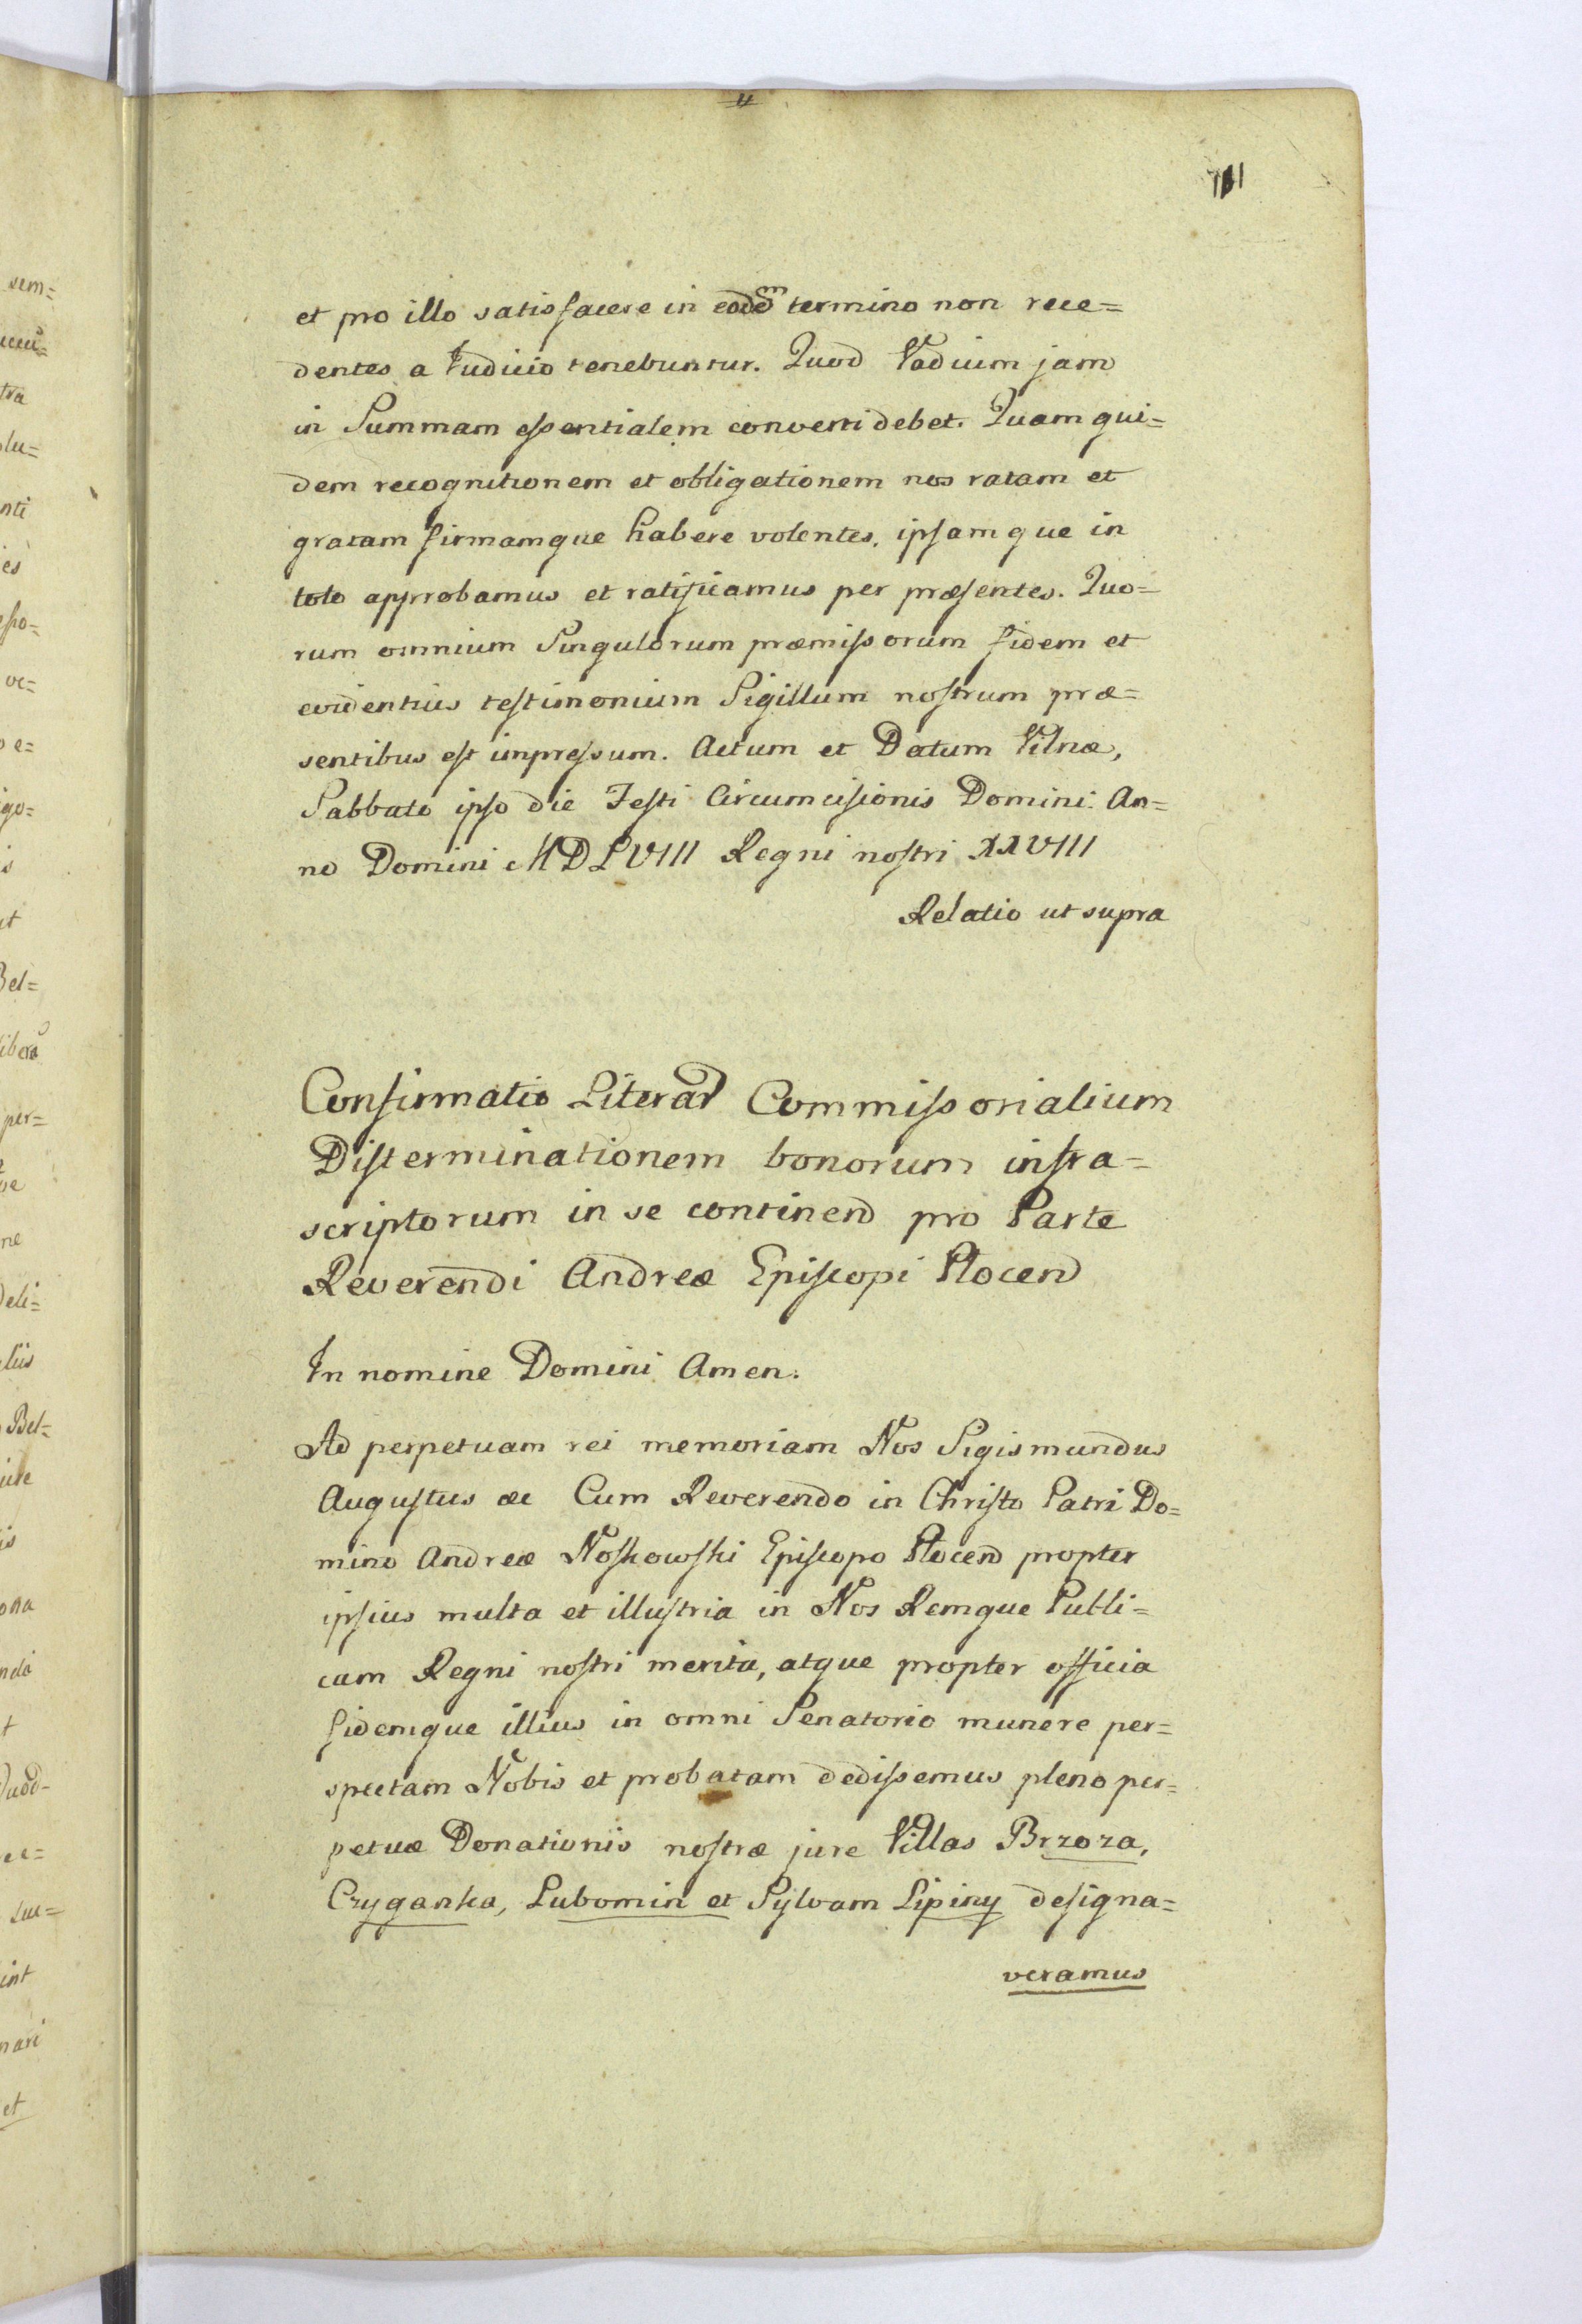 et pro illo satisfacere in eodem termino non rece=
dentes a Judicio tenebuntur. Quod Vadium jam
in Summam essentialem converti debet. Quam qui=
dem recognitionem et obligationem nos ratam et
gratam firmamque habere volentes, ipsamque in
toto approbamus et ratificamus per præsentes. Quo=
rum omnium Singulorum præmissorum fidem et
evidentius testimonium Sigillum nostrum præ=
sentibus est impressum. Actum et Datum Vilnæ,
Sabbato ipso die Festi Circumcisionis Domini An=
no Domini MDLVIII Regni nostri XXVIII
Relatio ut supra
Confirmatio Literar Commissorialium
Disterminationem bonorum infra=
scriptorum in se continen pro Parte
Reverendi Andreæ Episcopi Plocen
In nomine Domini Amen.
Ad perpetuam rei memoriam Nos Sigismundus
Augustus æc Cum Reverendo in Christo Patri Do=
mino Andreæ Noskowski Episcopo Plocen propter
ipsius multa et illustria in Nos Remque Publi=
cam Regni nostri merita, atque propter officia
fidemque illius in omni Senatorio munere per=
spectam Nobis et probatam dedissemus pleno per=
petuæ Donationis nostræ jure Villas Brzoza,
Cryganka, Lubomin et Sylvam Lipiny designa=
veramus
sem=
tra
lu=
nti
es
sso=
ve=
e=
igo=
is
et
Bel=
per=
ne
Deli=
Bel=
ure
is
ona
t
int
nari
et